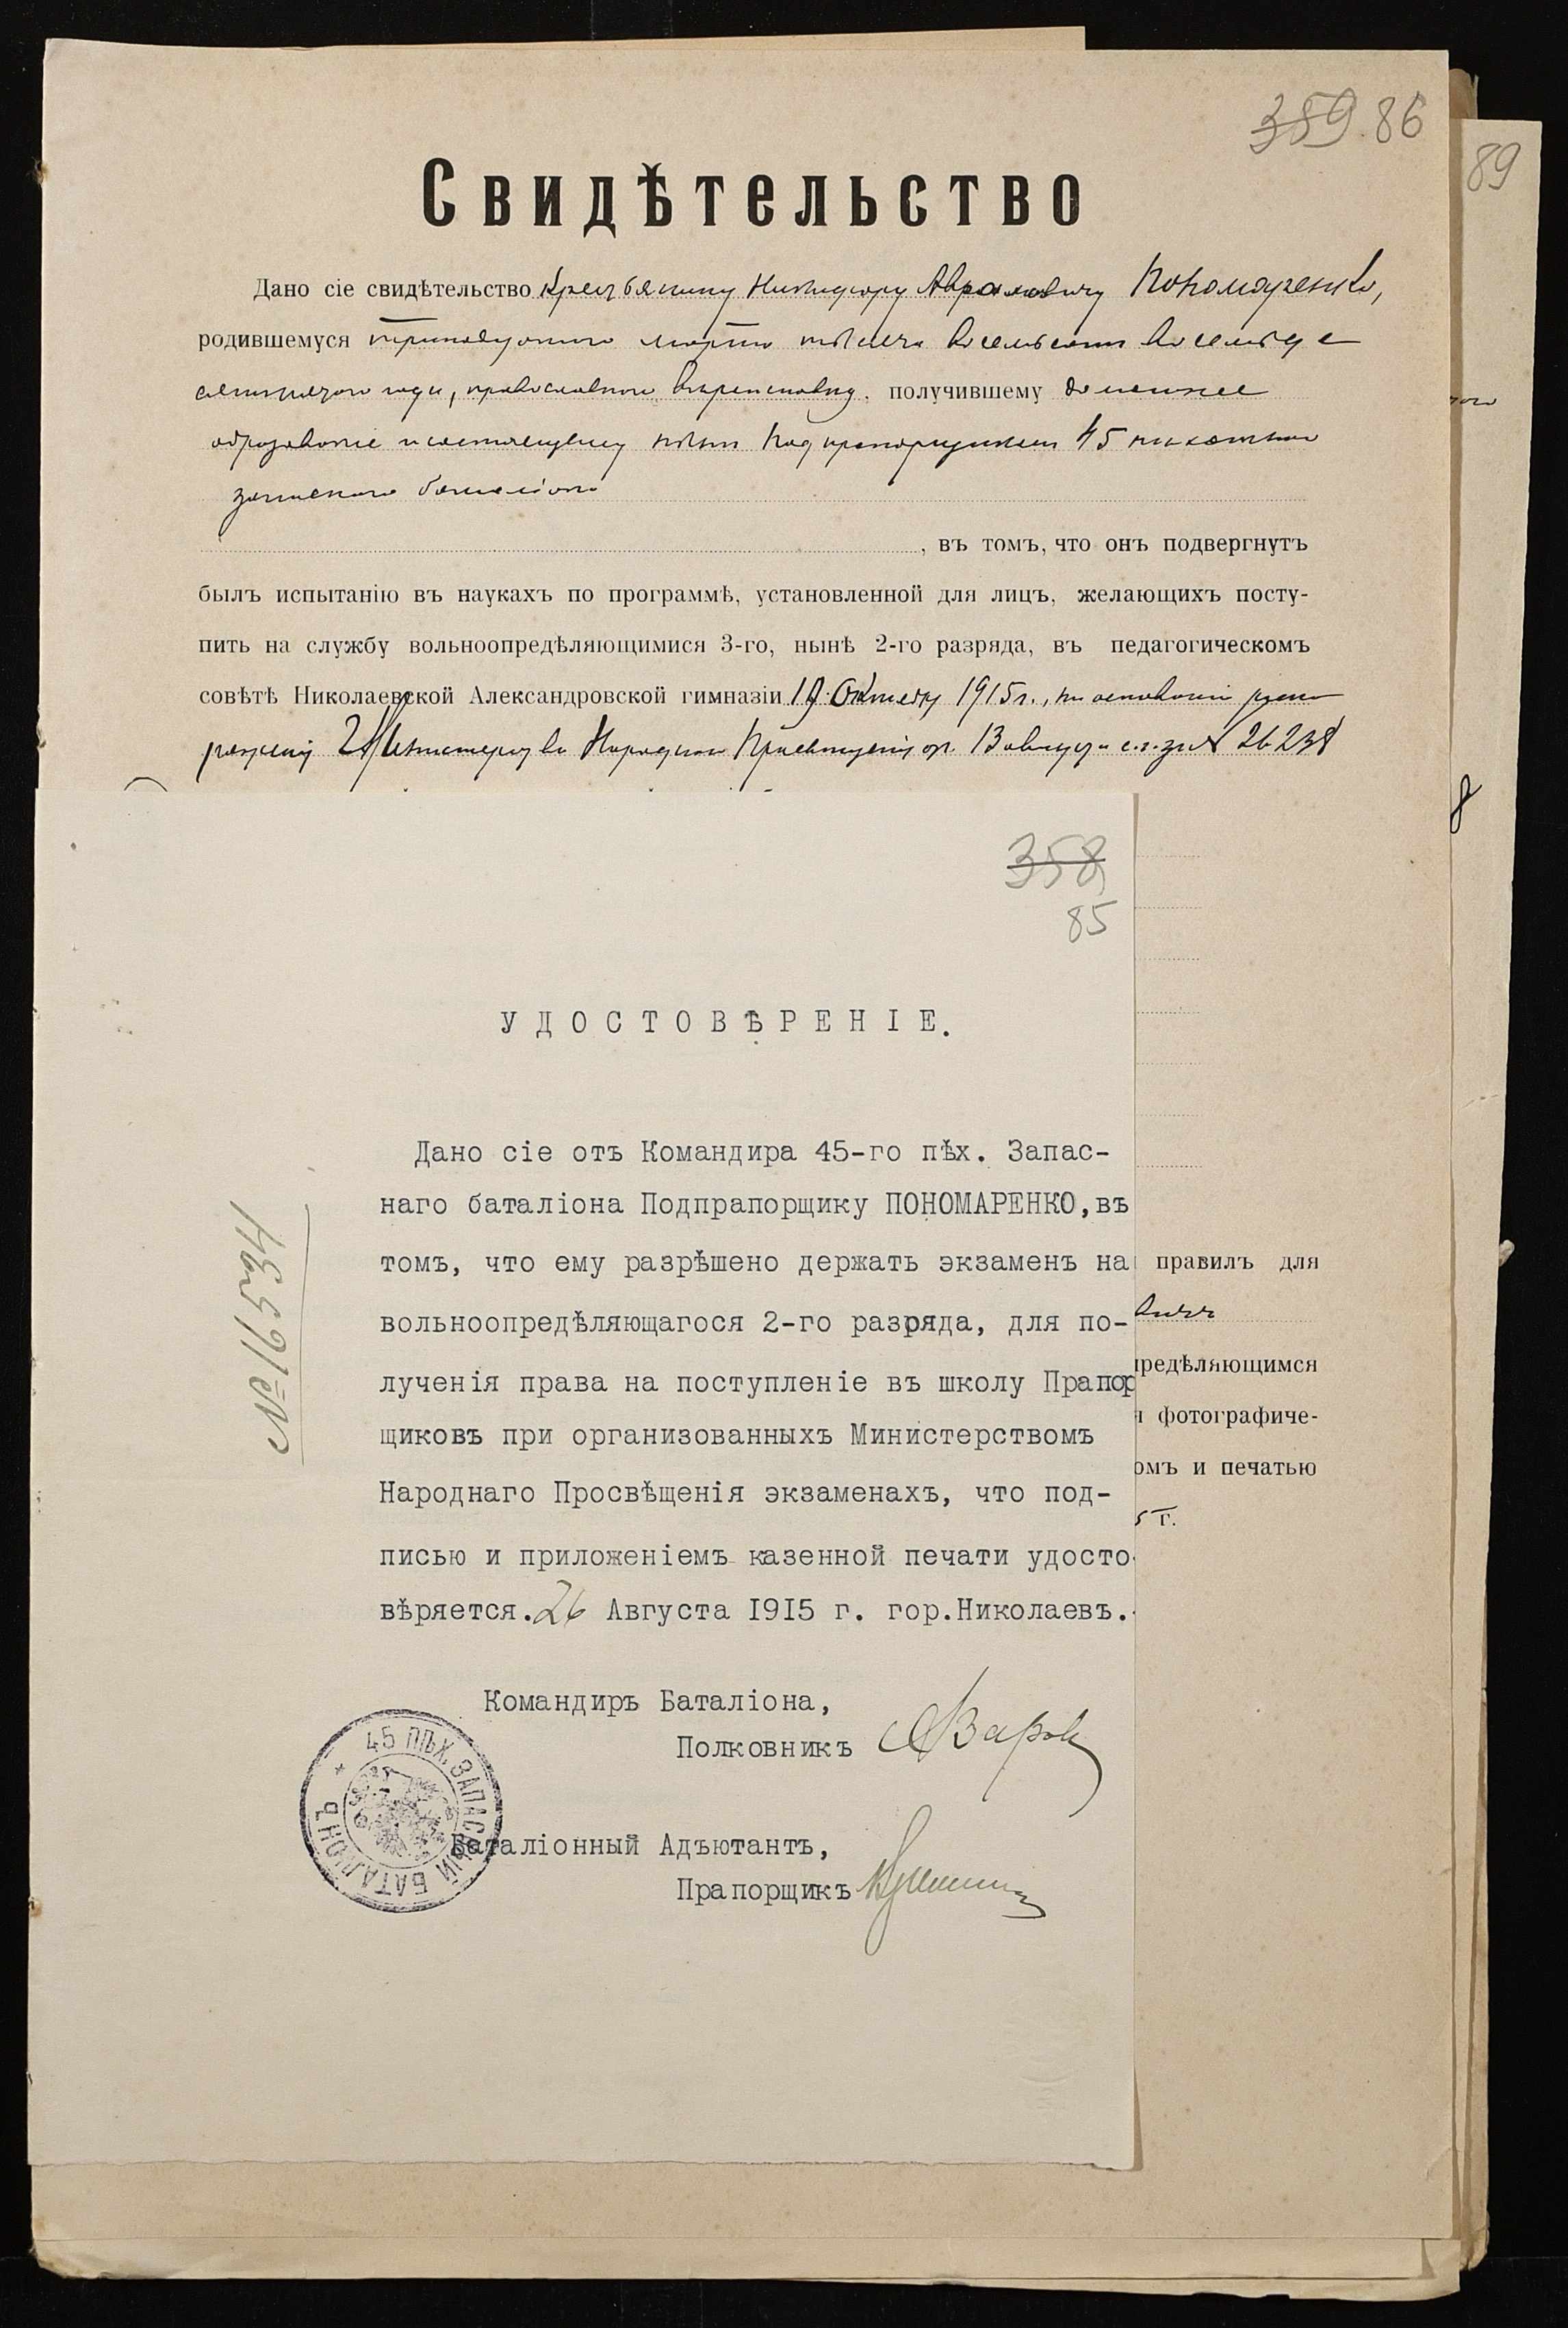 359. 86
89
Свидѣтельство
Дано сіе свидѣтельство крестьянину Никифору Аврамовичу Пономаренко,
родившемуся тринадцатого марта тысяча восемьсотъ восемьде
сятъ года, православного вѣроисповѣд. получившему домашнее
образованіе и состоящему нынѣ Подпрапорщикомъ 45 пѣхотнаго
запаснаго баталіона
, въ томъ, что онъ подвергнутъ
былъ испытанію въ наукахъ по программѣ, установленной для лицъ, желающихъ посту-
пить на службу вольноопредѣляющимися 3-го, нынѣ 2-го разряда, въ педагогическомъ
совѣтѣ Николаевской Александровской гимназіи 19 Октября 1915 г., на основаніи распо
ряженія Министерства Народнаго Просвѣщенія от 13 августа с.г. за № 26238
358
85
УДОСТОВѢРЕНІЕ.
Дано сіе отъ Командира 45-го пѣх. Запас-
наго баталіона Подпрапорщику ПОНОМАРЕНКО, въ
томъ, что ему разрѣшено держать экзаменъ на
вольноопредѣляющагося 2-го разряда, для по-
лученія права на поступленіе въ школу Прапор
щиковъ при организованныхъ Министерствомъ
Народнаго Просвѣщенія экзаменахъ, что под-
писью и приложеніемъ казенной печати удосто-
вѣряется. 26 Августа 1915 г. гор.Николаевъ.
Командиръ Баталіона,
Полковникъ
Баталіонный Адъютантъ,
Прапорщикъ
45 ПѢХ. ЗАПАСНЫЙ БАТАЛІОНЪ
правилъ для
предѣляющимся
фотографиче-
омъ и печатью
5 г.